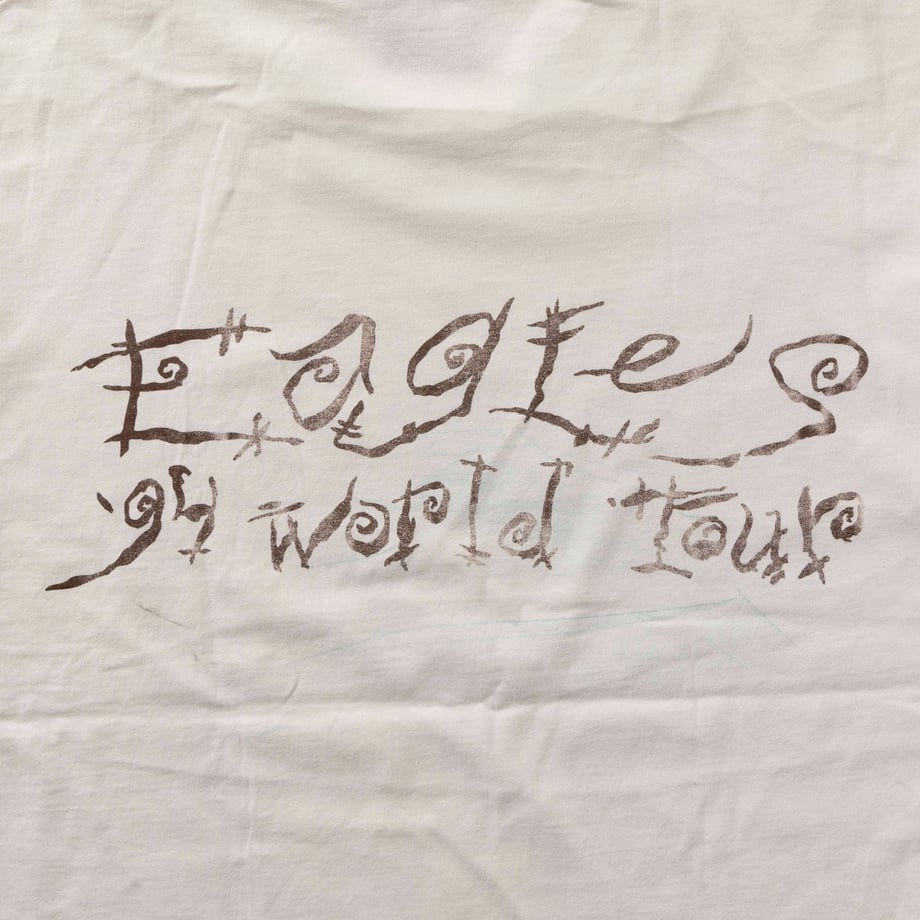 Eagles
'94 World Tour